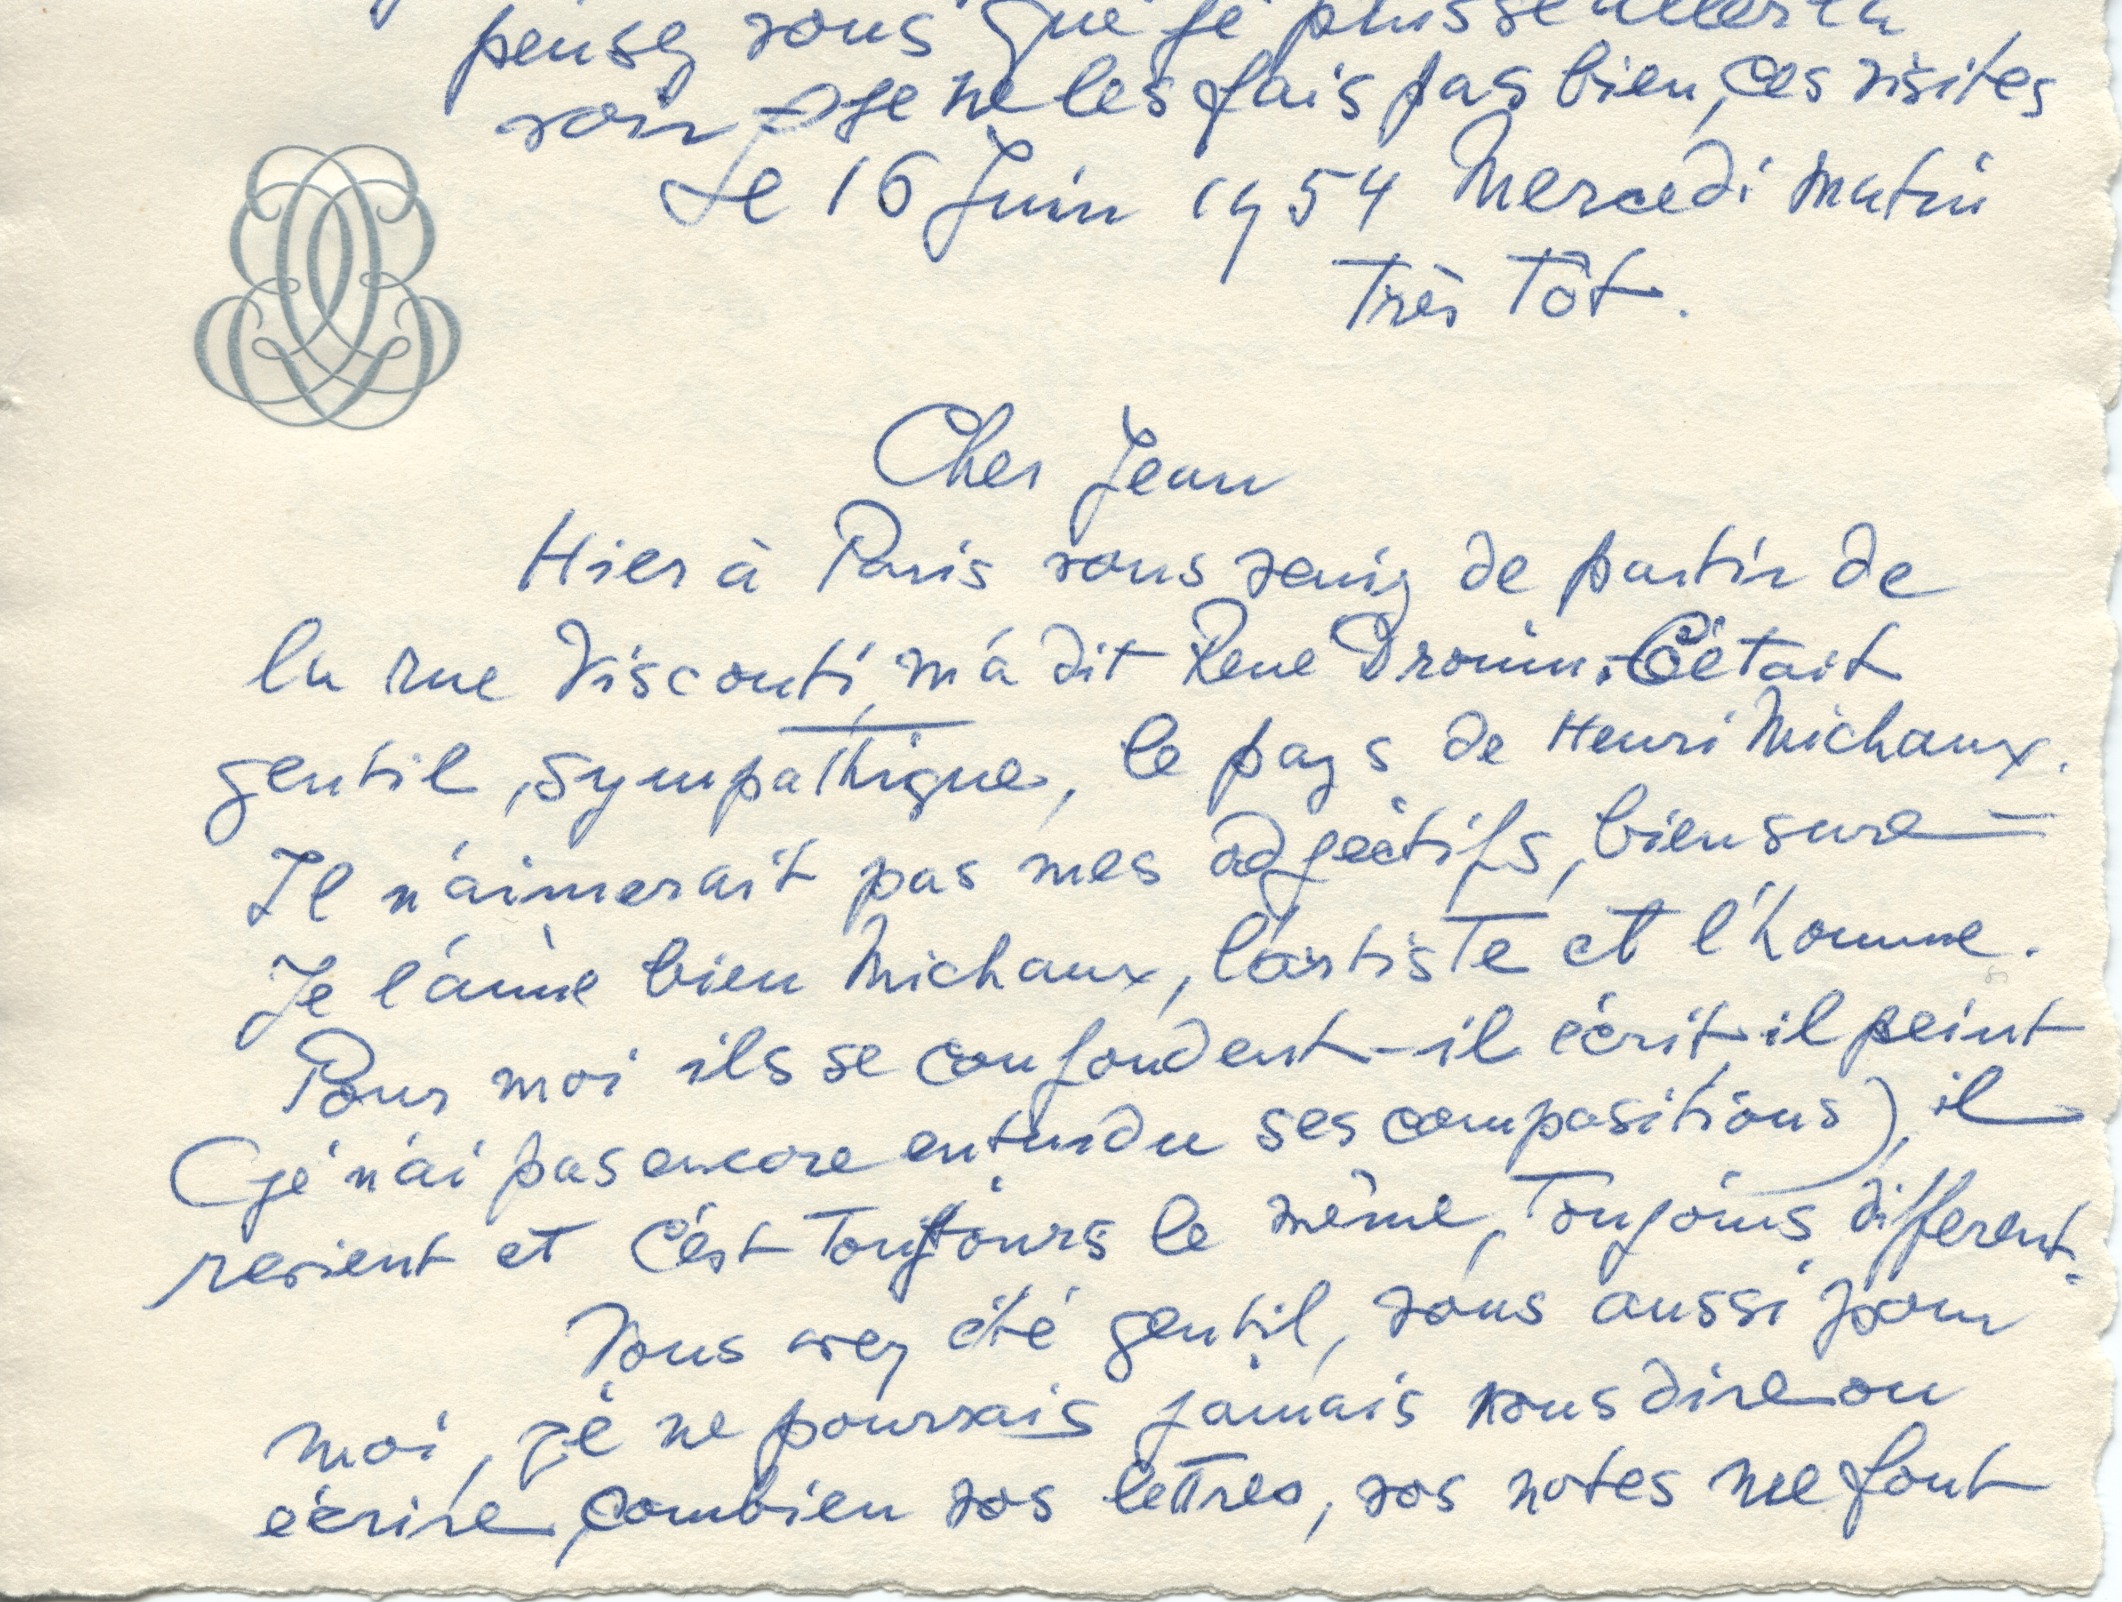 pensez vous que je puisse aller la
voir - je ne les fais pas bien, ces visites
Le 16 Juin 1954 Mercedi matin
Très Tôt.
Cher Jean
Hier à Paris vous veniz de partir de
la rue Visconti, m'a dit Rene Drouin. C'était
gentil, sympathique, le pays de Henri Michaux.
Il n'aimerait pas mes adjectifs, bien sure —
Je l'aime bien Michaux, l'artiste et l'homme.
Pour moi ils se confondent - il écrit, il peint
(je n'ai pas encore entendu ses compositions), il
revient et c'est Toujours le même, Toujours différent.
Vous avez été gentil, vous aussi pour
moi, je ne pourrais jamais vous dire ou
écrire, combien vos lettres, vos notes me font